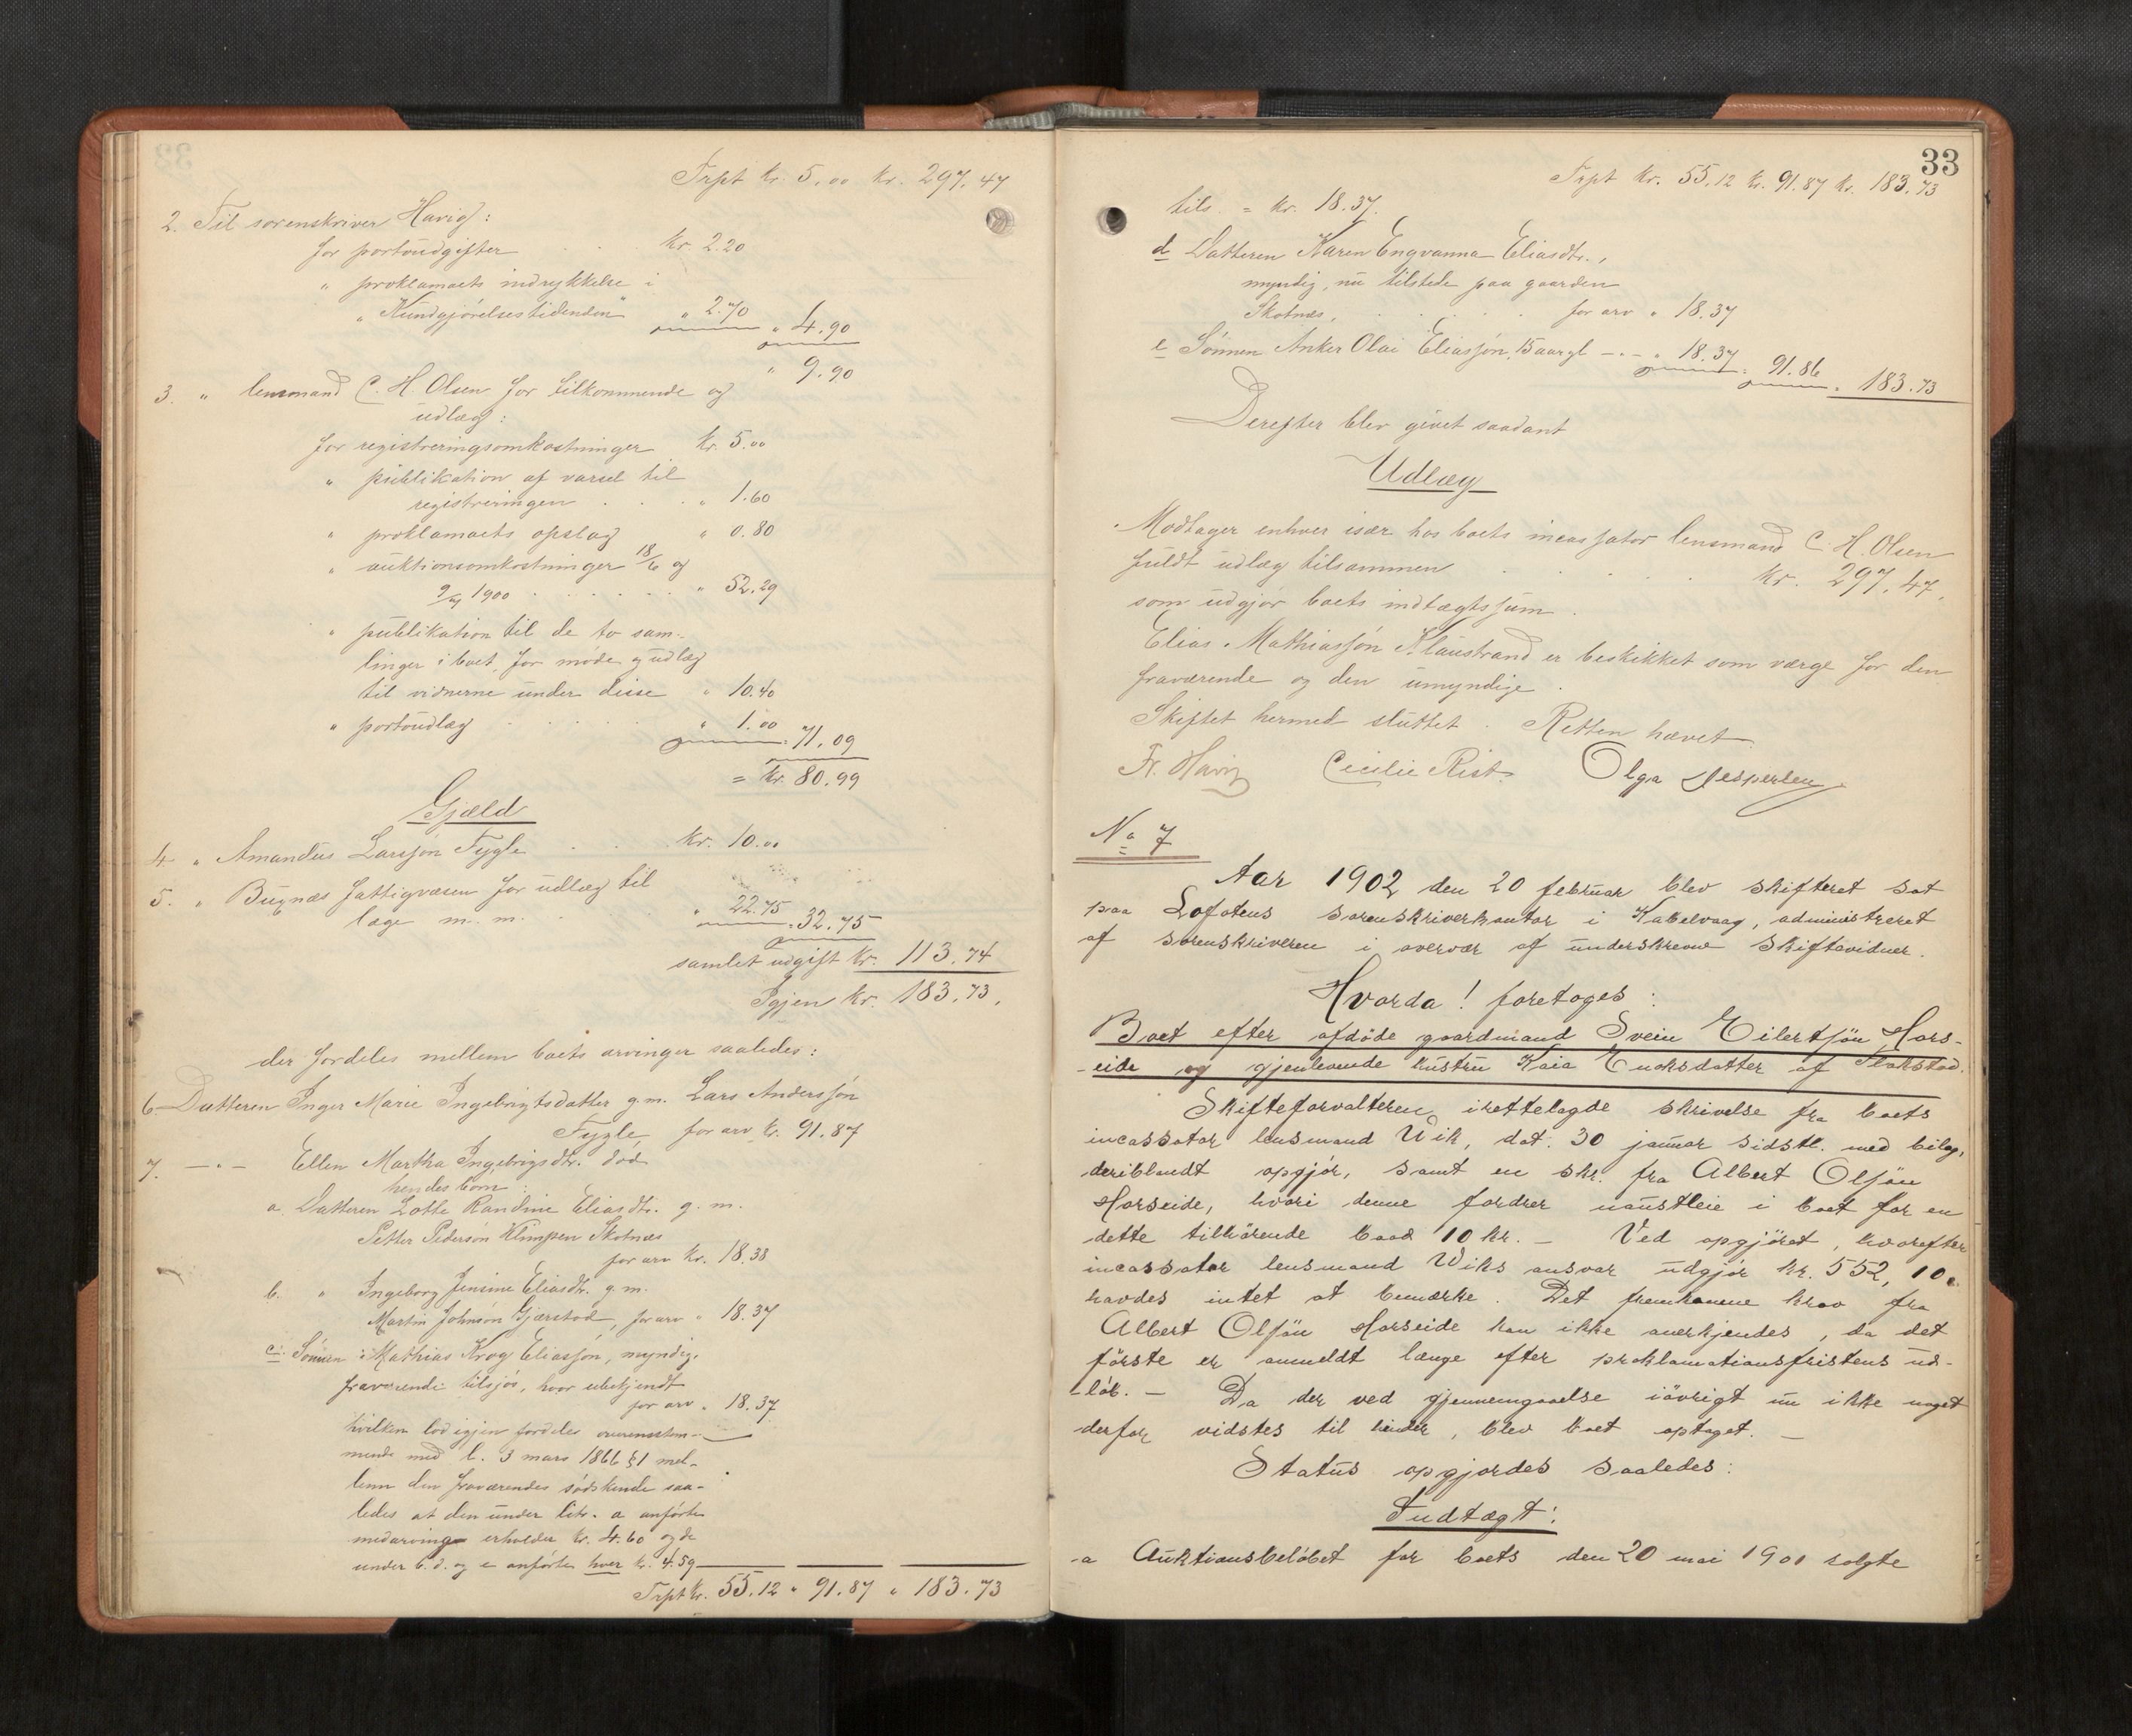 Trpt kr. 5.00 kr. 297.47
2. Til sorenskriver Havig:
for portoudgifter . . kr. 2.20
" proklamaets indrykkelse i
" Kundgjørelsestidenden" " 2.70 " 4.90
" 9.90
3. " lensmand C. H. Olsen for tilkommende og
udlæg:
for registreringsomkostninger kr. 5.00
" publikation af varsel til
registreringen . . . " 1.60
" proklamaets opslag " 0.80
" auktionsomkostninger 18/6 og
9/7 1900 . . . . . . " 52.29
" publikation til de to sam-
linger i boet, for møde og udlæg
til vidnerne under disse " 10.40
" portoudlæg . . . . . " 1.00 = 71.09
= kr. 80.99
Gjæld
4 " Amandus Larsjøn Fygle . . . kr. 10.00
5. " Buqnæs fattigvæsen for udlæg til
læge m. m. . . " 22.75 = 32.75
samlet udgift kr. 113.74
Igjen kr. 183.73.
der fordeles mellem boets arvinger saaledes:
6 Datteren Inger Marie Ingebrigtsdatter g.m. Lars Andersjøn
Fygle, for arv kr. 91.87
7. —"— Ellen Martha Ingebrigsdtr. død
hendes børn:
a. Datteren Lotte Randine Eliasdtr. g. m.
Petter Pedersøn Klimpen Skotnæs
for arv kr. 18.38
b. " Ingeborg Jensine Eliasdtr. g. m.
Martin Johnsøn Gjærstad, for arv " 18.37
c. Sønnen: Mathias Krog Eliassjøn, myndig,
fraværende tilsjøs, hvor ubekjendt
for arv " 18.37
hvilken lod igjen fordeles overensstem-
mende med l. 3 mars 1866 §1 mel-
lem den fraværendes sødskende saa-
ledes at den under litr. a anførte
medarving erholder kr. 4.60 og de
under b. d. og e anførte hver kr. 4.59
Trpt kr. 55.12 " 91.87 " 183.73
33
Trpt kr. 55.12 kr. 91.87 kr. 183.73
tils. = kr. 18.37.
d Datteren Karen Engvanna Eliasdtr.,
myndig, nu tilstede paa gaarden
Skotnæs, . . . . for arv " 18.37
e Sønnen Anker Olai Eliassjøn, 15 aar gl —"— " 18.37 = 91.86 " 183.73
Derefter blev givet saadant
Udlæg
Modtager enhver især hos boets incassator lensmand C. H. Olsen
fuldt udlæg tilsammen . . . . . kr. 297.47.
som udgjør boets indtægtssum.
Elias Mathiassjøn Klaustrand er beskikket som værge for den
fraværende og den umyndige.
Skiftet hermed sluttet. Retten hævet.
Fr. Havig Cecilie Rist. Olga Jespersen
No 7
Aar 1902 den 20 februar blev skifteret sat
paa Lofotens sorenskriverkontor i Kabelvaag, administreret
af sorenskriveren i overvær af underskrevne skiftevidner.
Hvorda! foretoges:
Boet efter afdøde gaardmand Svein Eilertsjøn Hors-
-eide og gjenlevende hustru Kaia Enoksdatter af Flakstad.
Skifteforvalteren irettelagde skrivelse fra boets
incassator lensmand Wik, dat. 30 januar sidstl. med bilag,
deriblandt opgjør, samt en skr. fra Albert Olsjøn
Horseide, hvori denne fordrer naustleie i boet for en
dette tilhørende baad 10 kr. — Ved opgjøret, hvorefter
incassator lensmand Wiks ansvar udgjør kr. 552,10
havdes intet at bemærke. Det fremkomne krav fra
Albert Olsjøn Horseide kan ikke anerkjendes, da det
første er anmeldt længe efter proklamationsfristens ud-
-løb. — Da der ved gjennemgaaelse iøvrigt nu ikke noget
derfor vidstes til hinder, blev boet optaget. —
Status opgjordes saaledes:
Indtægt:
a Auktionsbeløbet for boets den 20 mai 1901 solgte